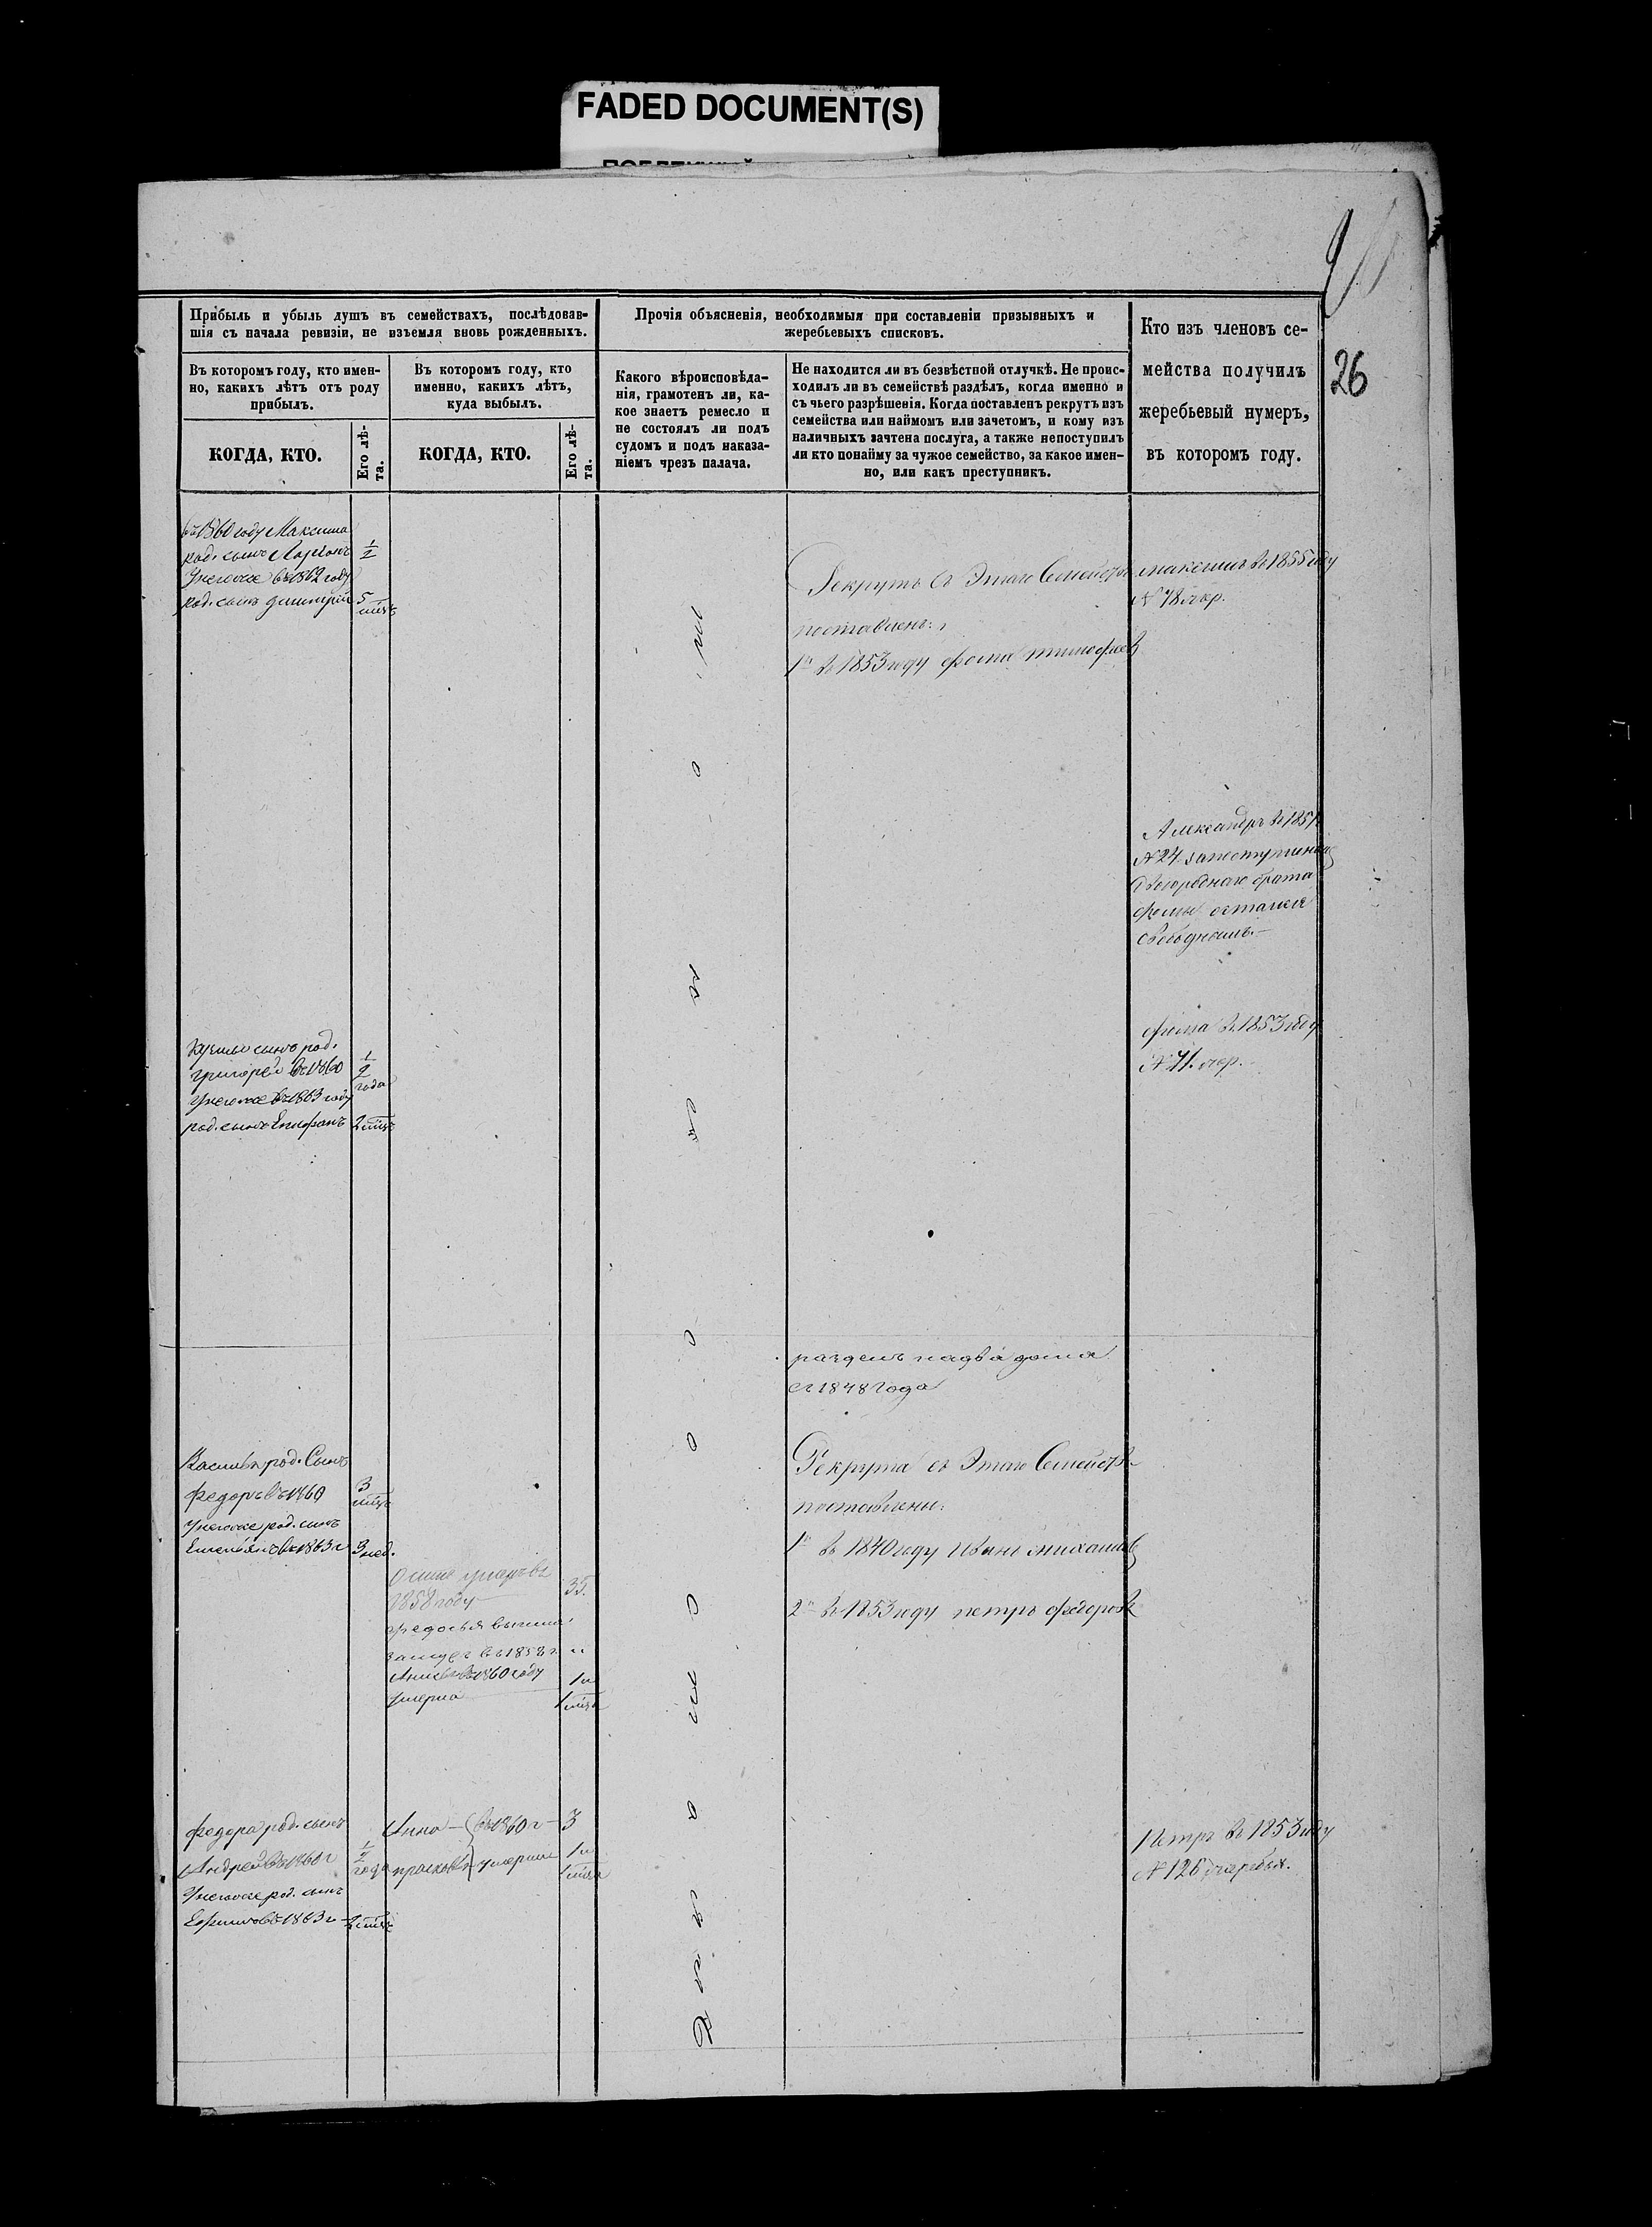 FADED DOCUMENT(S)
26
Прибыль и убыль душъ въ семействахъ, послѣдовав-
шія съ начала ревизіи, не изъемля вновь рожденныхъ.
Прочія объясненія, необходимыя при составленіи призывныхъ и
жеребьевыхъ списковъ.
Кто изъ членовъ се-
мейства получилъ
жеребьевый нумеръ,
въ которомъ году.
Въ которомъ году, кто имен-
но, какихъ лѣтъ отъ роду
прибылъ.
Въ которомъ году, кто
именно, какихъ лѣтъ,
куда выбылъ.
Какого вѣроисповѣда-
нія, грамотенъ ли, ка-
кое знаетъ ремесло и
не состоялъ ли подъ
судомъ и подъ наказа-
ніемъ чрезъ палача.
Не находится ли въ безвѣстной отлучкѣ. Не проис-
ходилъ ли въ семействѣ раздѣлъ, когда именно и
съ чьего разрѣшенія. Когда поставленъ рекрутъ изъ
семейства или наймомъ или зачетомъ, и кому изъ
наличныхъ зачтена послуга, а также непоступилъ
ли кто понайму за чужое семейство, за какое имен-
но, или какъ преступникъ.
КОГДА, КТО.
Его лѣ-
та.
КОГДА, КТО.
Его лѣ-
та.
въ 1860 году Максима
род. сынъ Ларіонъ 1/2
Унегоже въ 1862 году
род. сынъ димитрій 5 мѣсц
Рекрутъ съ Этаго Семейства
поставленъ:
1й въ 1853 году фома тимофеев
максимъ въ 1855 году
№ 78 жер.
Александръ въ 1854
№ 24 запоступлениемъ
двоюроднаго брата
фомы остался
свободнымъ.
фома въ 1853 году
№ 41 жер.
Кузьмы сынъ род.
григорей въ 1860 1/2 года
Унегоже въ 1863 году
род. сынъ Епифанъ 2 мѣсц
разделъ надва дома
съ 1848 года
Василья род. Сынъ
федоръ въ 1860 3 мѣсц
Унегоже род. сынъ
Емельянъ въ 1863 г 3 нед.
Рекрута съ Этаго Семейства
поставлены:
1й въ 1840 году Иванъ михайлов
2й въ 1853 году петръ федоров
умеръ въ
1858 году 35.
федосья вышла
замужъ въ 1858 г. "
въ 1860 году 1 и
Умерла 1 мѣсц
федора род. сынъ
Андрей въ 1860 г 1/2 года
Унегоже род. сынъ
Ефимъ въ 1863 г 2 мѣсц
Анна — въ 1860 г — 3
прасковья умерли 1 и 1 мѣсц
Петръ въ 1853 году
№ 126 жеребья.